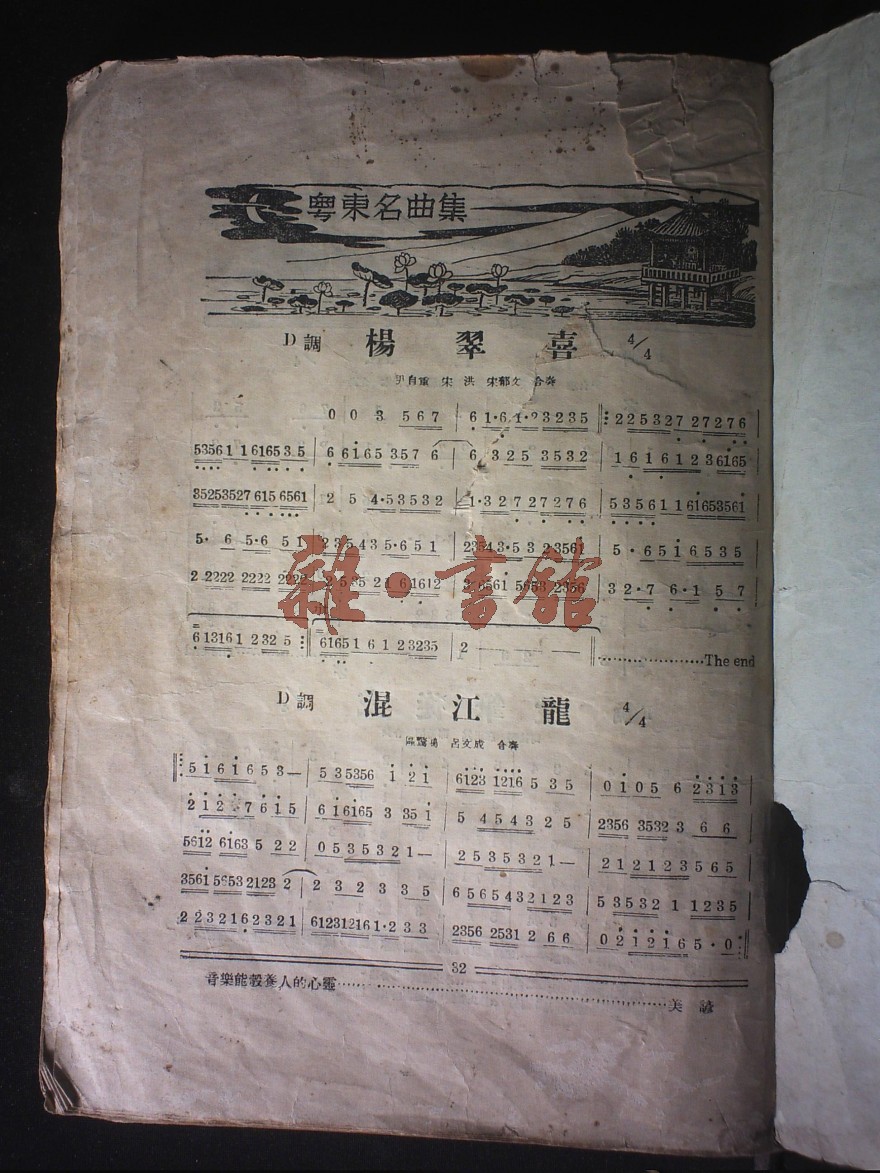 粵東名曲集
D調 楊翠喜 4/4
尹自重 宋洪 宋郁文 合奏
0 0 3 5 6 7 | 6 1·6 1·2 3 2 3 5 ‖: 2 2 5 3 2 7 2 7 2 7 6 |
5 3 5 6 1 1 6 1 6 5 3 5 | 6 6 1 6 5 3 5 7 6 | 6 3 2 5 3 5 3 2 | 1 6 1 6 1 2 3 6 1 6 5
3 5 2 5 3 5 2 7 6 1 5 6 5 6 1 | 2 5 4·5 3 5 3 2 | 1·3 2 7 2 7 2 7 6 | 5 3 5 6 1 1 6 1 6 5 3 5 6 1
5· 6 5·6 5 1 | 2 3 5 4 3 5·6 5 1 | 2 3 5 4 3·5 3 2 3 5 6 1 | 5·6 5 1 6 5 3 5
2 2222 2222 2222 | 2 5 3 5 2 1 6 1 6 1 2 | 3 6561 5653 2356 | 3 2·7 6·1 5 7
6 1 3 1 6 1 2 3 2 5 :‖ 6 1 6 5 1 6 1 2 3 2 3 5 | 2 — — — ‖ The end
D調 混江龍 4/4
呂文成 合奏
‖: 5 1 6 1 6 5 3 — | 5 3 5 3 5 6 1 2 1 | 6123 1216 5 3 5 | 0 1 0 5 6 2 3 1 3
2 1 2 3 7 6 1 5 | 6 1 6 1 6 5 3 3 5 1 | 5 4 5 4 3 2 5 | 2356 3532 3 6 6
5612 6163 5 2 2 | 0 5 3 5 3 2 1 — | 2 5 3 5 3 2 1 — | 2 1 2 1 2 3 5 6 5
3561 5653 2123 2 | 2 3 2 3 3 5 | 6 5 6 5 4 3 2 1 2 3 | 5 3 5 3 2 1 1 2 3 5
2 2 3 2 1 6 2 3 2 1 | 6 1 2 3 1 2 1 6 1·2 3 3 | 2356 2531 2 6 6 | 0 2 1 2 1 6 5·0 :‖
32
音樂能彀養人的心靈 美諺
雜·書館